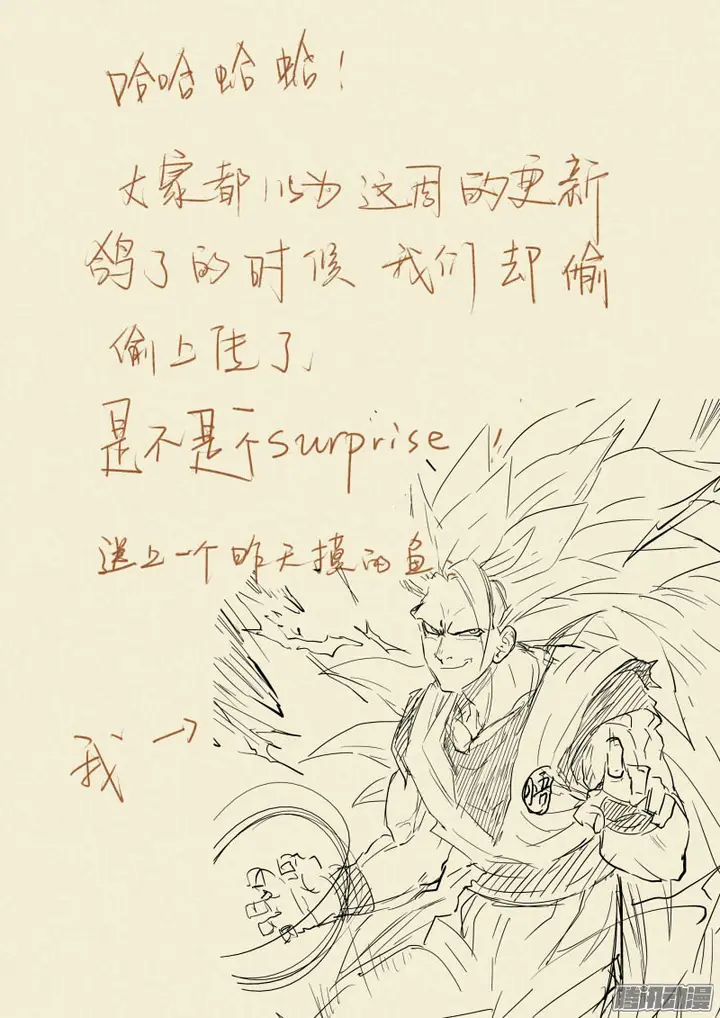 哈哈哈哈!
大家都以为这周的更新
鸽了的时候 我们却偷
偷上传了
是不是个surprise!
送上一个昨天摸的鱼
我→
悟
腾讯动漫